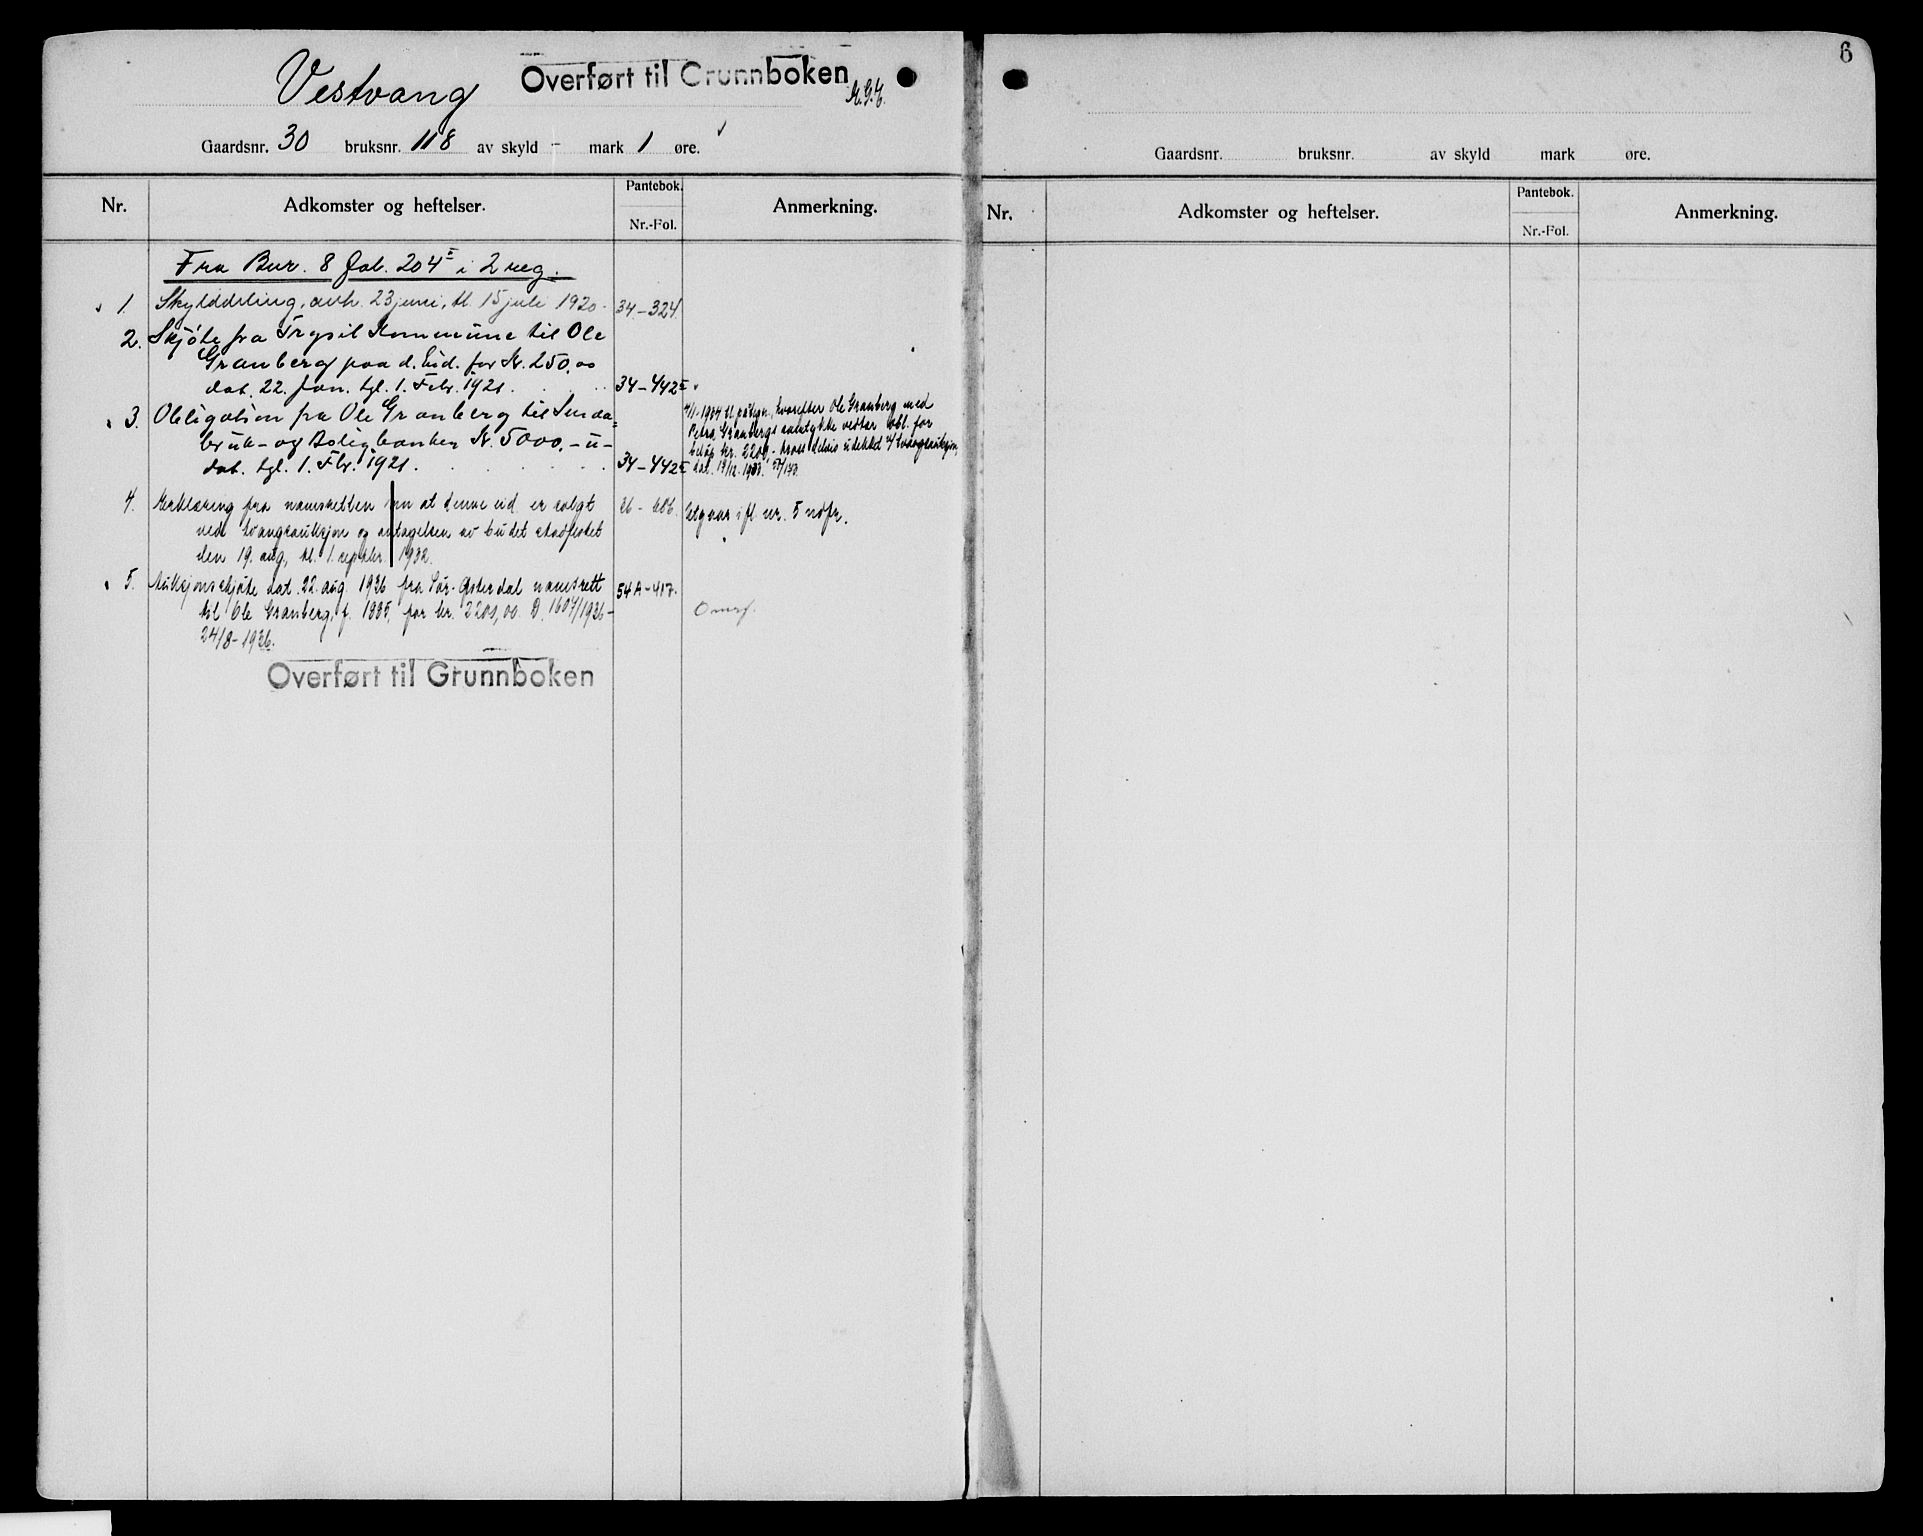 Vestvang
Overført til Grunnboken
Gaardsnr. 30 bruksnr. 118 av skyld - mark 1 øre.
Nr.
Adkomster og heftelser.
Pantebok.
Nr.-Fol.
Anmerkning.
Fra Bnr. 8 fol. 204 i 2 reg.
1. Skylddeling, avh. 23 juni, tl. 15 juli 1920. 34-324.
2. Skjøte fra Trysil Kommune til Ole
Granberg paa d. Eid. for Kr. 250.00
dat. 22. Jan. tgl. 1. Febr. 1921. 34-442
3. Obligation fra Ole Granberg til Smaa=
bruk- og Boligbanken Kr. 5000.-
dat. tgl. 1. Febr. 1921. 34-442
4/1-1934 tl. påtegn., hvorefter Ole Granberg med
Petra Granbergs samtykke vedtar obl. for
beløp kr. 2200,- udekket tvangsauksjon,
dat. 19/12.1933.
4. Erklæring fra namsretten om at denne eid. er solgt 26-606.
ved tvangsauksjon og antagelsen av budet stadfestet
den 19. aug, tl. 1. septbr. 1932.
Utgaar ifl. nr. 5 nedfr.
5. Auksjonsskjøte dat. 22. aug. 1936 fra Sør-Østerdal namsrett 54A-417.
til Ole Granberg, f. 1885, for kr. 2200,00. D. 1607/1936-
24/8-1936.
Overført til Grunnboken
6
Gaardsnr. bruksnr. av skyld mark øre.
Nr.
Adkomster og heftelser.
Pantebok.
Nr.-Fol.
Anmerkning.